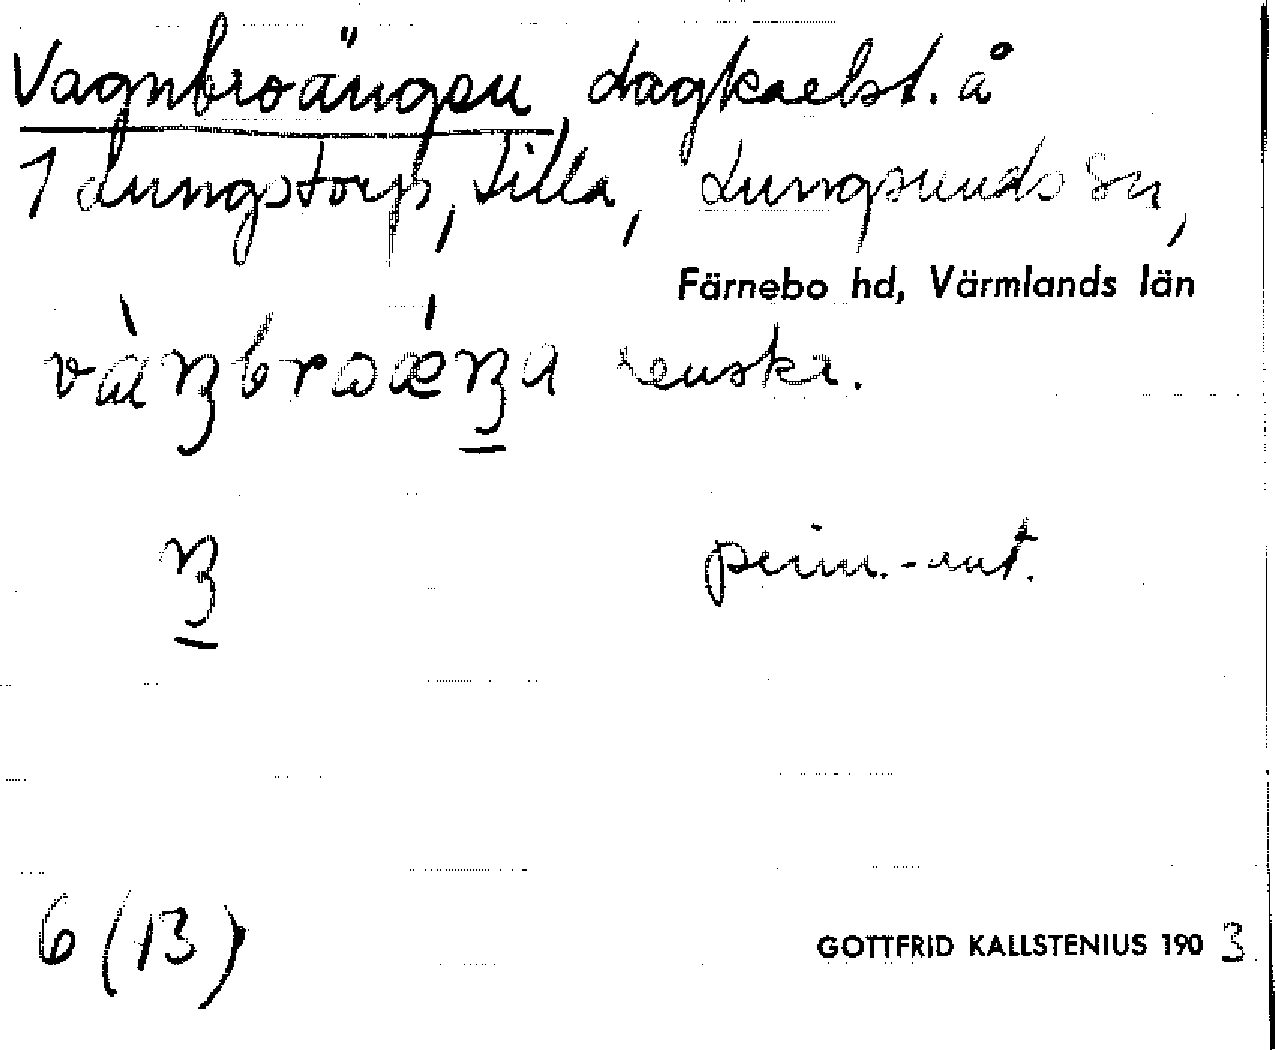 Vagnbroängen, dagkaelst. å
1 Lungstorp, Lilla, Lungsunds sn,
Färnebo hd, Värmlands län
renskr.
prim.-ant.
6 (13)
GOTTFRID KALLSTENIUS 1903